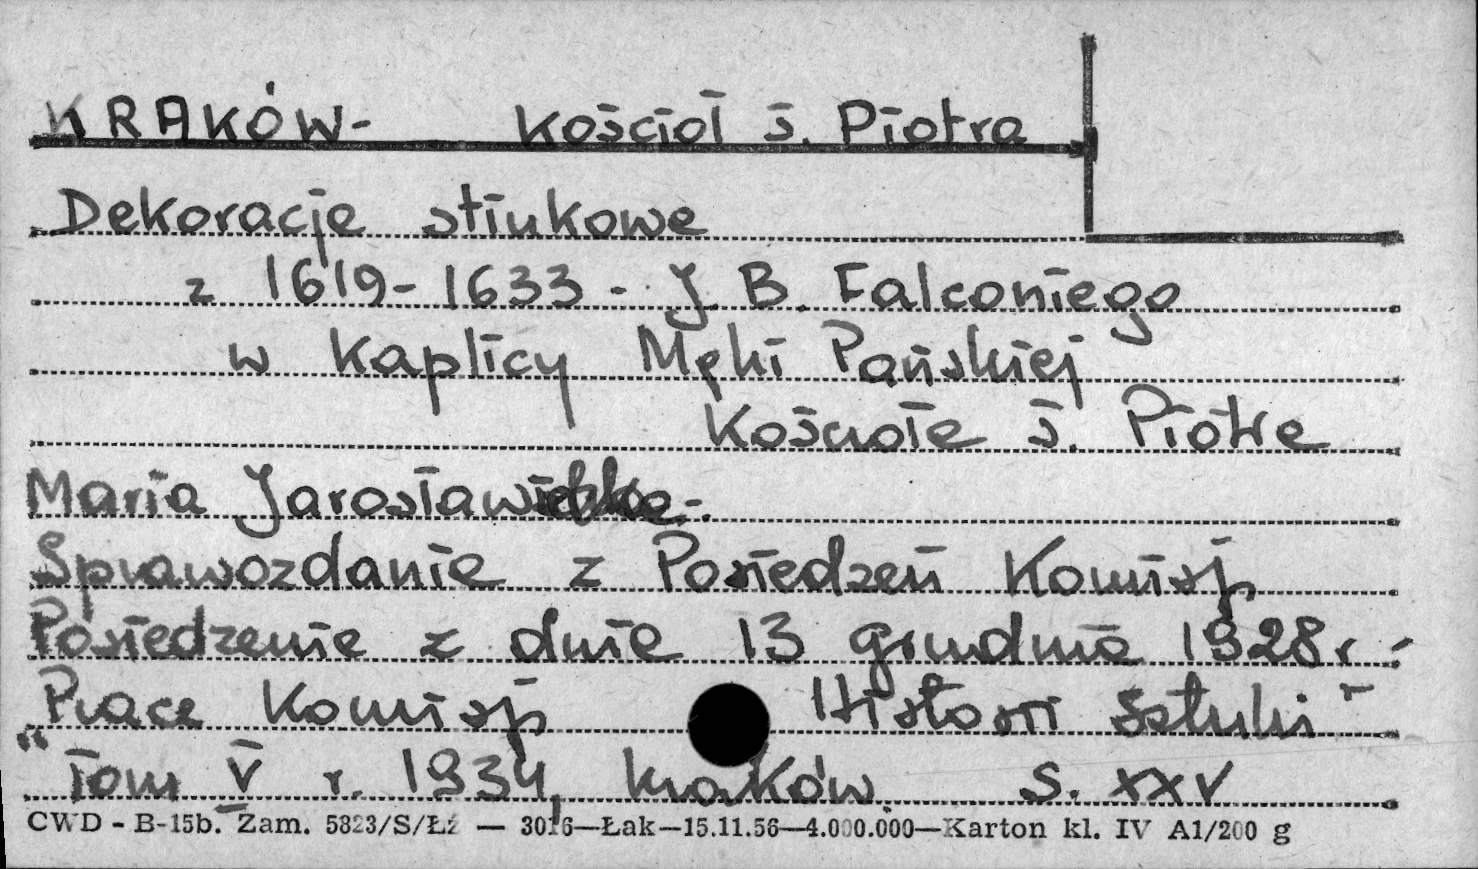 KRAKÓW- Kościół ś. Piotra
Dekoracje stiukowe
z 1619-1633 - J. B. Falconiego
w Kaplicy Męki Pańskiej
Kościole ś. Piotra
Maria Jarosławiecka-.
Sprawozdanie z Posiedzeń Komisji
Posiedzenie z dnia 13 grudnia 1928 r. -
Prace Komisji Historii Sztuki"
"Tom V r. 1934, Kraków. S. XXV
CWD - B-15b. Zam. 5823/S/Łź — 3016—Łak—15.11.56—4.000.000—Karton kl. IV A1/200 g